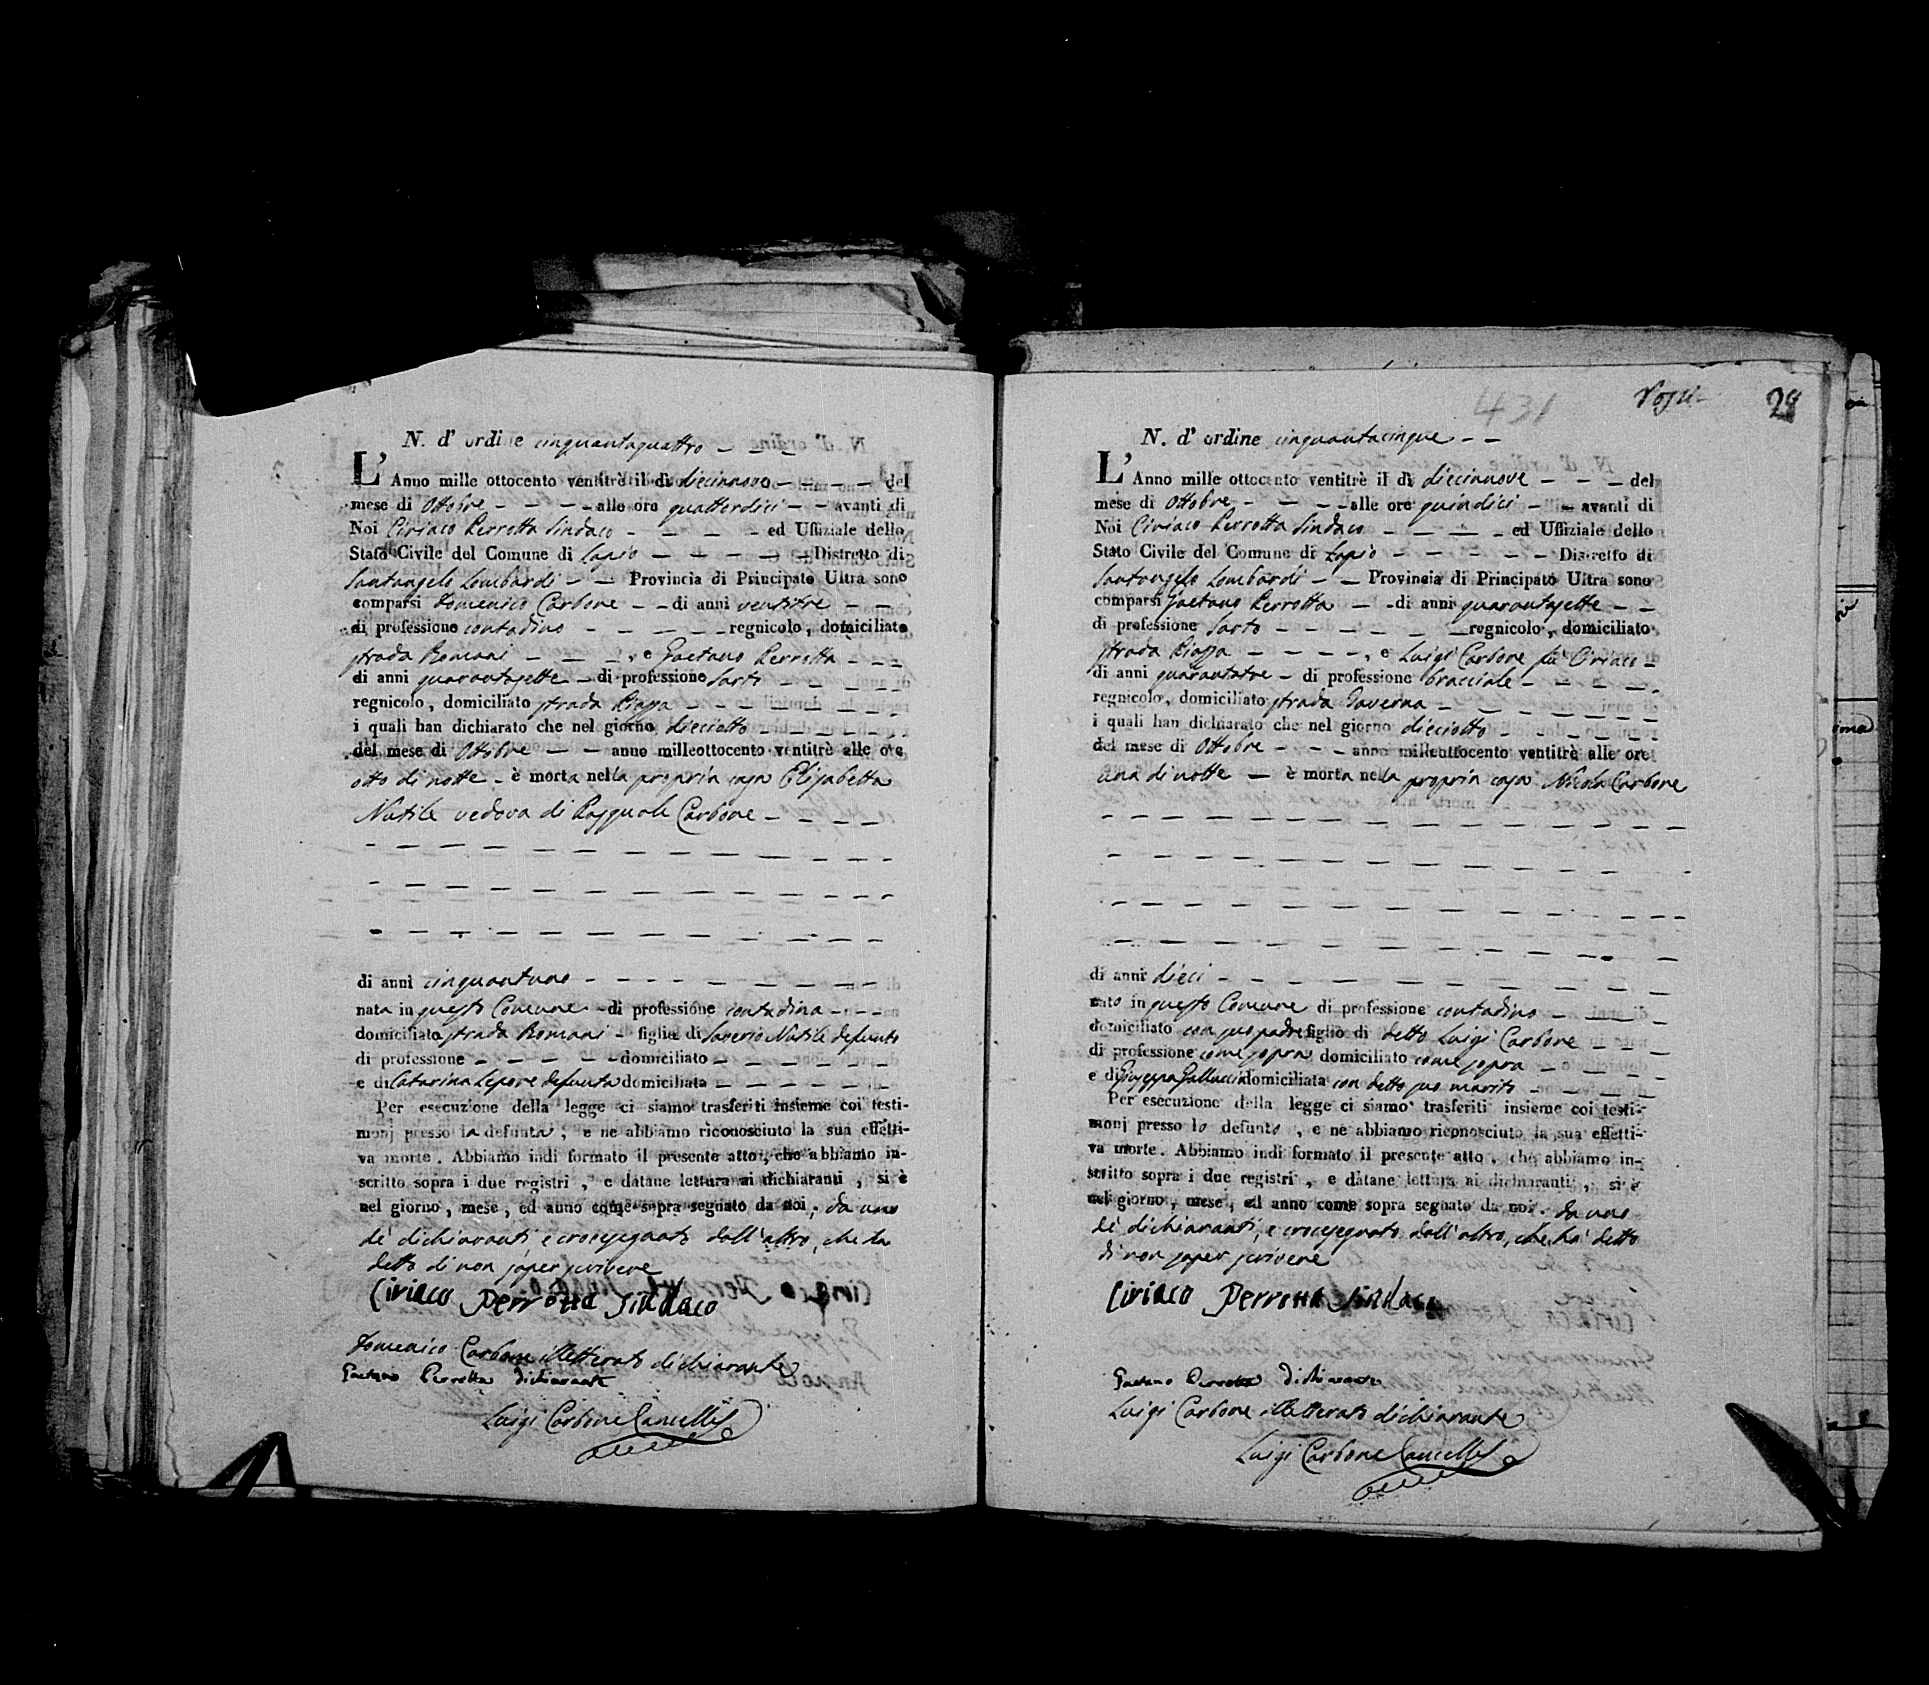 N. d' ordine cinquantaquattro
L' Anno mille ottocento ventitrè il dì diecinnove del
mese di Ottobre alle ore quattordici avanti di
Noi Ciriaco Perrotta Sindaco ed Uffiziale dello
Stato Civile del Comune di Lapio Distretto di
Santangelo Lombardi Provincia di Principato Ultra sono
comparsi Domenico Carbone di anni ventitre
di professione contadino regnicolo, domiciliato
strada Romani, e Gaetano Perrotta
di anni quarantasette di professione sarto
regnicolo, domiciliato strada Piazza
i quali han dichiarato che nel giorno dieciotto
del mese di Ottobre anno milleottocento ventitrè alle ore
otto di notte è morta nella propria casa Elisabetta
Nutile vedova di Pasquale Carbone
di anni cinquantuno
nata in questo Comune di professione contadina
domiciliata strada Romani figlia di Saverio Nutile defunto
di professione domiciliato
e di Catarina Lepore defunta domiciliata
Per esecuzione della legge ci siamo trasferiti insieme coi testi-
monj presso la defunta, e ne abbiamo riconosciuto la sua effetti-
va morte. Abbiamo indi formato il presente atto, che abbiamo in-
scritto sopra i due registri, e datane lettura ai dichiaranti, si è
nel giorno, mese, ed anno come sopra segnato da noi, da uno
de' dichiaranti, e crocesegnato dall'altro, che ha
detto di non saper scrivere
Ciriaco Perrotta Sindaco
Domenico Carbone illetterato dichiarante
Gaetano Perrotta dichiarante
Luigi Carbone Cancell.
431
28
N. d' ordine cinquantacinque
L' Anno mille ottocento ventitrè il dì diecinnove del
mese di Ottobre alle ore quindici avanti di
Noi Ciriaco Perrotta Sindaco ed Uffiziale dello
Stato Civile del Comune di Lapio Distretto di
Santangelo Lombardi Provincia di Principato Ultra sono
comparsi Gaetano Perrotta di anni quarantasette
di professione sarto regnicolo, domiciliato
strada Piazza, e Luigi Carbone fu Ciriaco
di anni quarantatre di professione bracciale
regnicolo, domiciliato strada Taverna
i quali han dichiarato che nel giorno dieciotto
del mese di Ottobre anno milleottocento ventitrè alle ore
una di notte è morto nella propria casa Nicola Carbone
di anni dieci
nato in questo Comune di professione contadino
domiciliato con suo padre figlio di detto Luigi Carbone
di professione come sopra domiciliato come sopra
e di Giuseppa Galluccio domiciliata con detto suo marito
Per esecuzione della legge ci siamo trasferiti insieme coi testi-
monj presso lo defunto, e ne abbiamo riconosciuto la sua effetti-
va morte. Abbiamo indi formato il presente atto, che abbiamo in-
scritto sopra i due registri, e datane lettura ai dichiaranti, si è
nel giorno, mese, ed anno come sopra segnato da noi, da uno
de' dichiaranti, e crocesegnato dall'altro, che ha detto
di non saper scrivere
Ciriaco Perrotta Sindaco
Gaetano Perrotta dichiarante
Luigi Carbone illetterato dichiarante
Luigi Carbone Cancell.